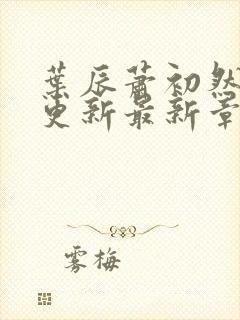 葉辰蕭初然
更新最新章
雾梅